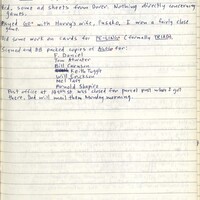 Did, some ad sheets from Dover. Nothing directly concerning
games.
Played GO with Harry's wife, I won a fairly close
game.
Did some work on cards for (formally
Signed and packed copies of for:
F. Daniel
Tom Shaster
Bill
Keith Taggt
Will Erickson
Mel Taft
Arnold Shapiro
Post office at was closed for parcel post when I got
there. Dad will mail them Monday morning.